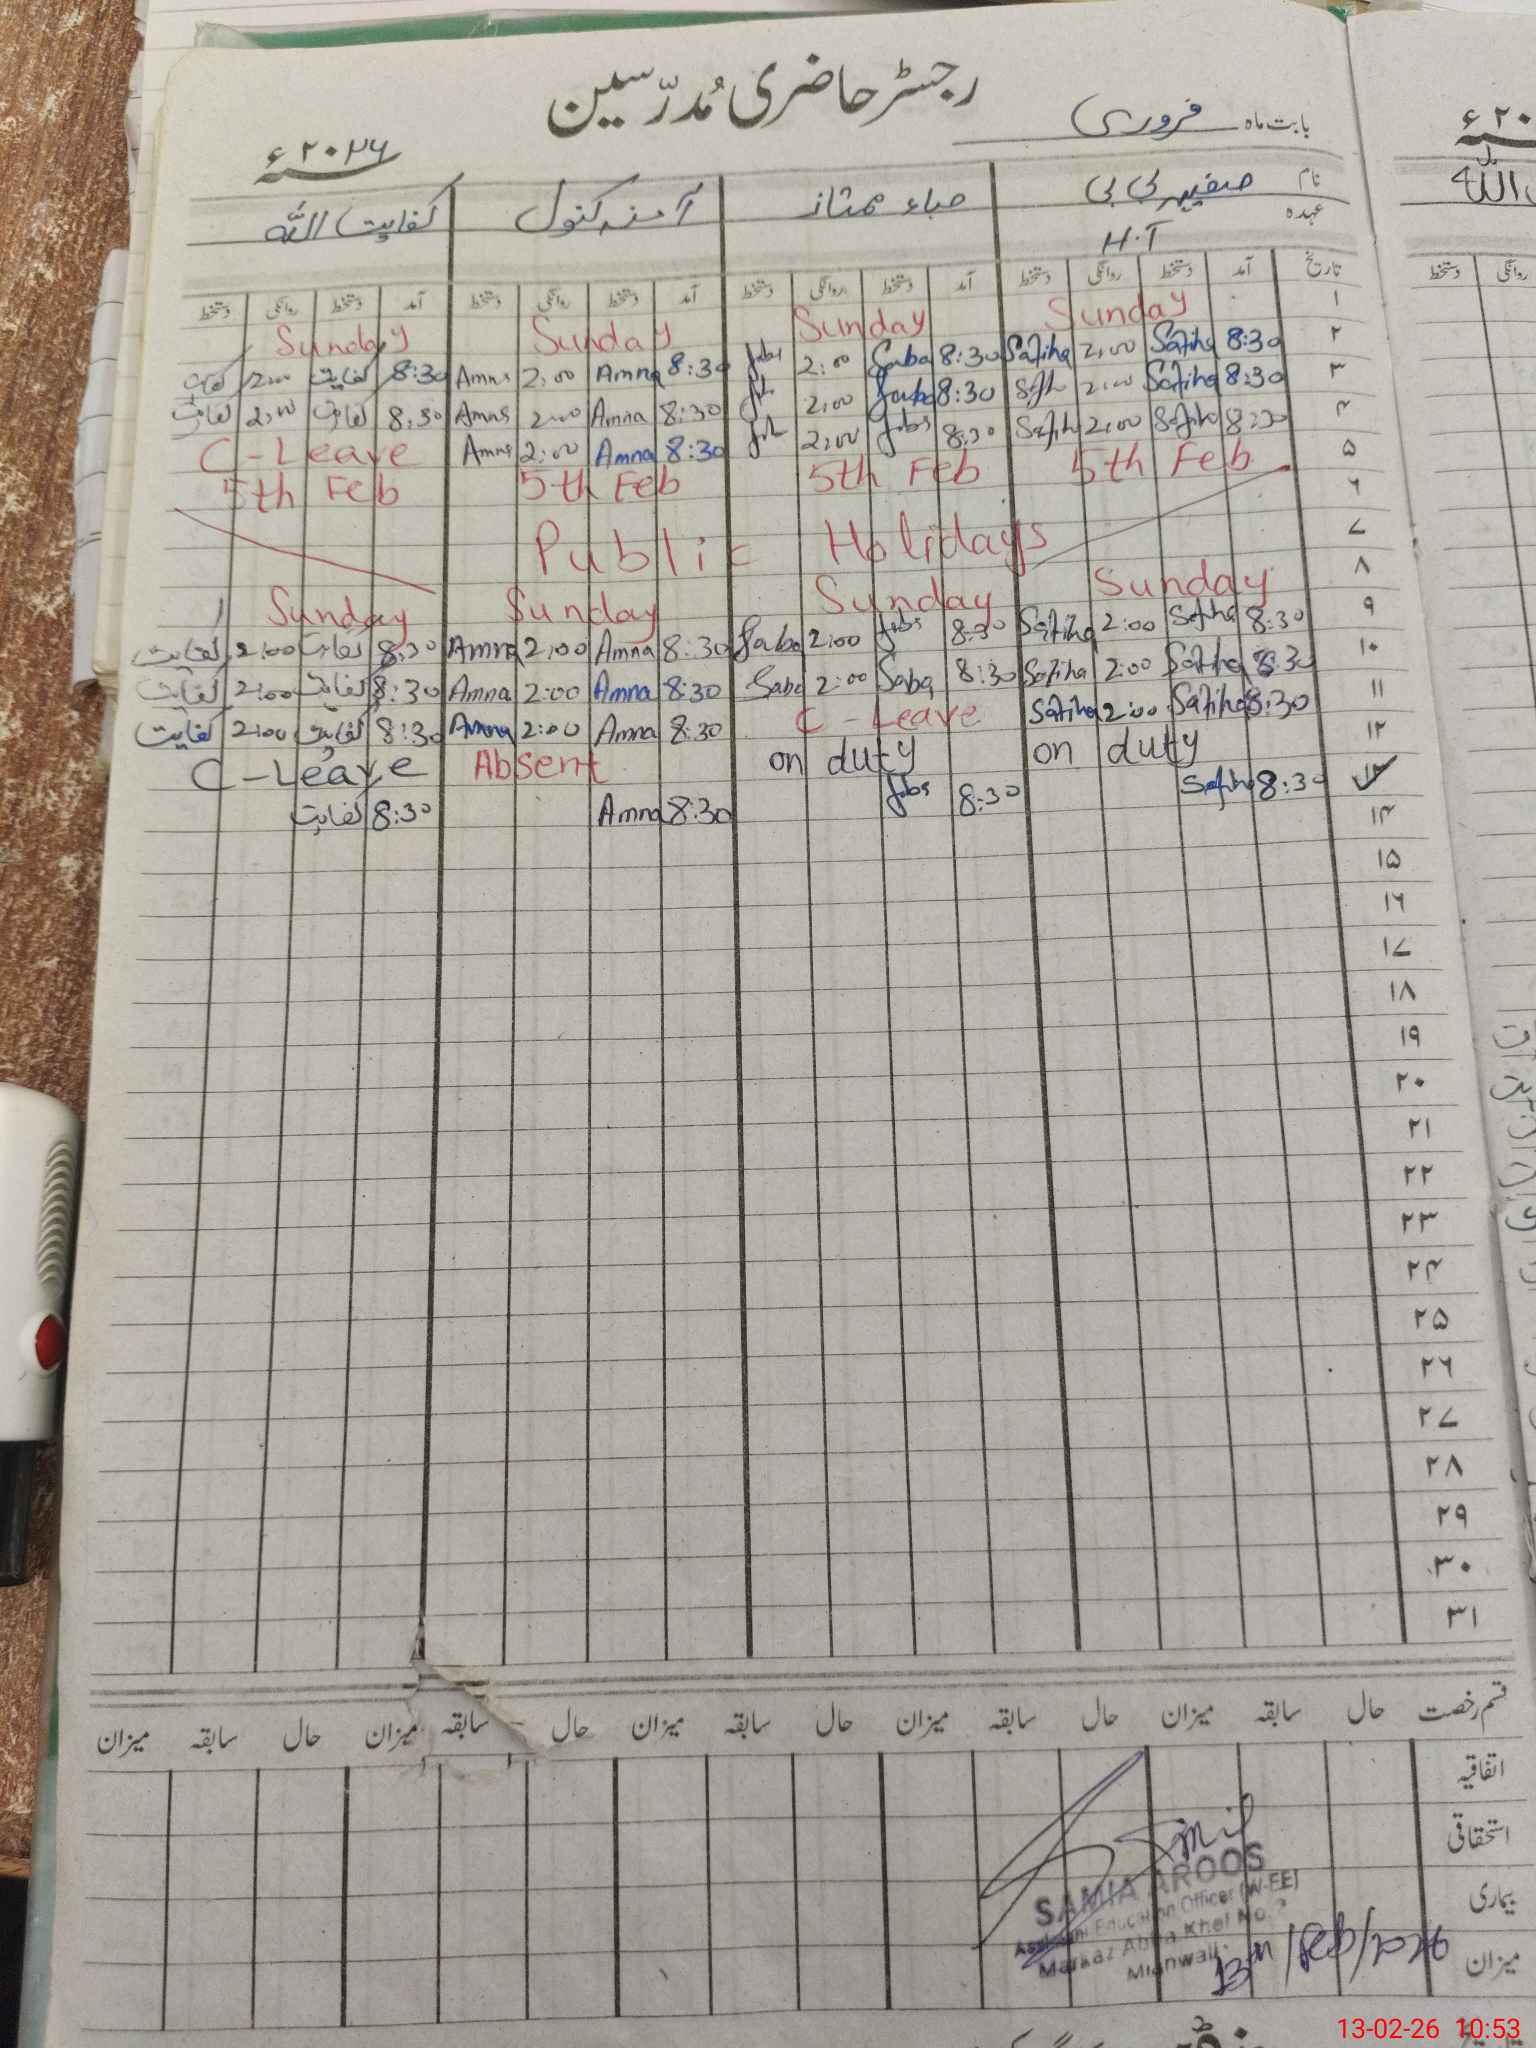 رجسٹر حاضری مُدرّسین
بابت ماہ فروری
۲۰۲۶ء
نام صفیہ بی بی صباء ممتاز آمنہ کنول کفایت اللہ
عہدہ H.T
تاریخ آمد دستخط روانگی دستخط آمد دستخط روانگی دستخط آمد دستخط روانگی دستخط آمد دستخط روانگی دستخط
۱ Sunday Sunday Sunday Sunday
۲ 8:30 Safiha 2:00 Safiha 8:30 Saba 2:00 8:30 Amna 2:00 Amna 8:30 کفایت 2:00 کفایت
۳ 8:30 Safiha 2:00 8:30 Saba 2:00 8:30 Amna 2:00 Amna 8:30 کفایت 2:00 کفایت
۴ 8:30 2:00 8:30 2:00 8:30 Amna 2:00 Amna C-Leave
۵ 5th Feb 5th Feb 5th Feb 5th Feb
۶
۷ Public Holidays
۸ Sunday Sunday Sunday Sunday
۹ 8:30 2:00 Safiha 8:30 2:00 Saba 8:30 Amna 2:00 Amna 8:30 کفایت 2:00 کفایت
۱۰ 8:30 Safiha 2:00 Safiha 8:30 Saba 2:00 Saba 8:30 Amna 2:00 Amna 8:30 کفایت 2:00 کفایت
۱۱ 8:30 Safiha 2:00 Safiha C-Leave 8:30 Amna 2:00 Amna 8:30 کفایت 2:00 کفایت
۱۲ on duty on duty Absent C-Leave
۱۳ 8:30 8:30 8:30 Amna 8:30 کفایت
۱۴
۱۵
۱۶
۱۷
۱۸
۱۹
۲۰
۲۱
۲۲
۲۳
۲۴
۲۵
۲۶
۲۷
۲۸
۲۹
۳۰
۳۱
قسم رخصت حال سابقہ میزان حال سابقہ میزان حال سابقہ میزان حال سابقہ میزان
اتفاقیہ
استحقاقی
بیماری
میزان
SAMIA AROOS
Assistant Education Officer (W-EE)
Markaz Abba Khel No. 2
Mianwali
13th/Feb/2026
13-02-26 10:53